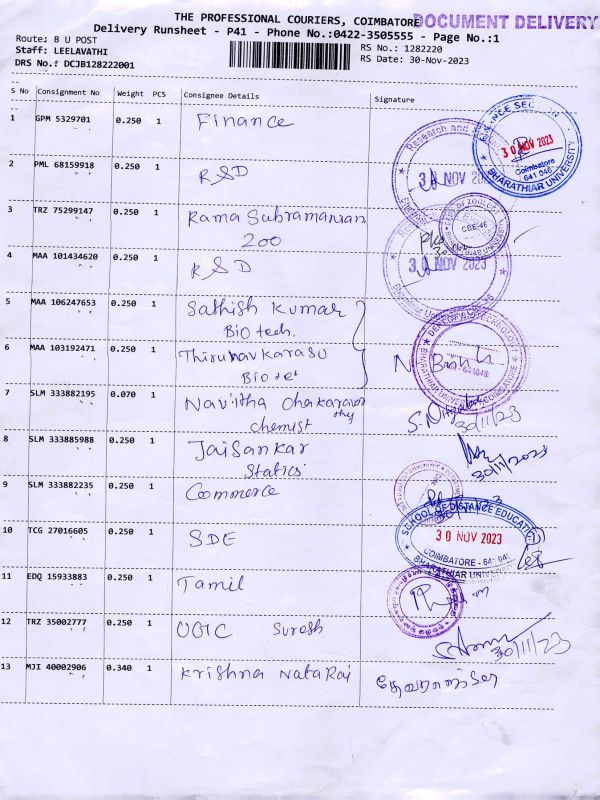 THE PROFESSIONAL COURIERS, COIMBATORE
DOCUMENT DELIVERY
Delivery Runsheet - P41 - Phone No.:0422-3505555 - Page No.:1
Route: B U POST
RS No.: 1282220
Staff: LEELAVATHI
RS Date: 30-Nov-2023
DRS No.: DCJB128222001
S No Consignment No Weight PCS Consignee Details Signature
1 GPM 5329701 0.250 1 Finance
FINANCE SECTION
30 NOV 2023
Coimbatore
641 046
BHARATHIAR UNIVERSITY
2 PML 68159918 0.250 1 R&D
Research and
30 NOV 2023
3 TRZ 75299147 0.250 1 Rama Subramanian
200
OF ZOOLOGY
CBE-46
4 MAA 101434620 0.250 1 R&D
30 NOV 2023
5 MAA 106247653 0.250 1 Sathish Kumar
Bio tech.
6 MAA 103192471 0.250 1 Thirunavkarasu
Bio te
BHARATHIAR UNIVERSITY
7 SLM 333882195 0.070 1 Navitha Chakaravar
thy
chemist
30/11/23
8 SLM 333885988 0.250 1 Jai Sankar
Statics
30/11/2023
9 SLM 333882235 0.250 1 Commerce
10 TCG 27016605 0.250 1 SDE
SCHOOL OF DISTANCE EDUCATION
30 NOV 2023
COIMBATORE - 641 046
BHARATHIAR UNIVERSITY
11 EDQ 15933883 0.250 1 Tamil
12 TRZ 35002777 0.250 1 UGC Suresh
30/11/23
13 MJI 40002906 0.340 1 Krishna Nata Raj